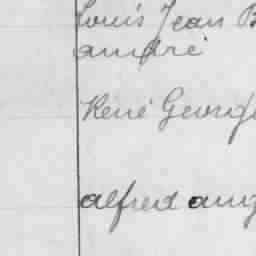 Louis Jean B
André
René George
alfred aug